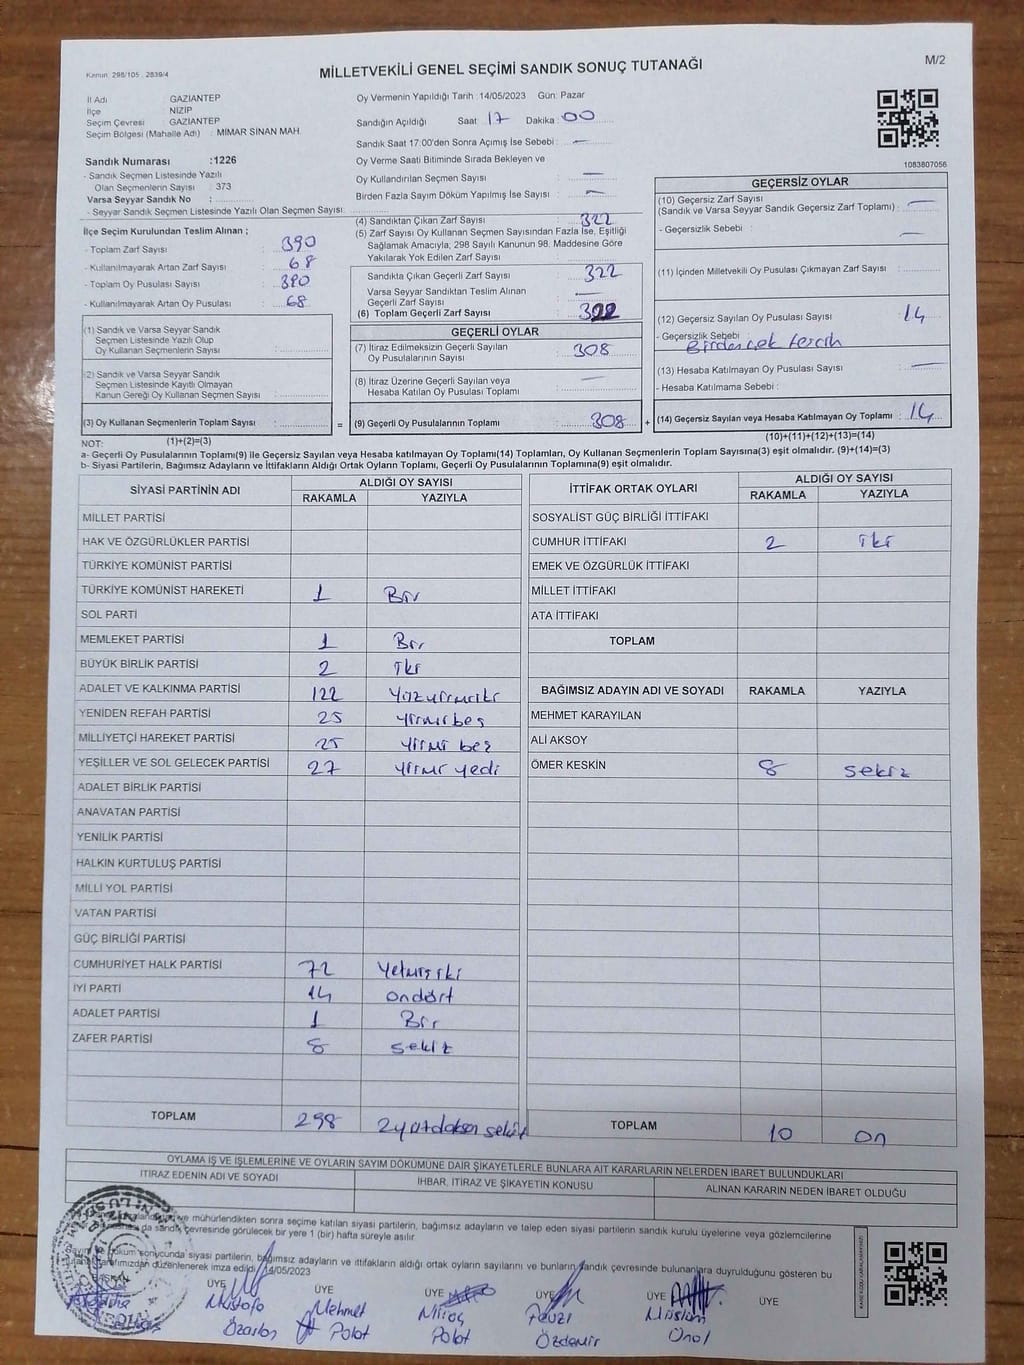 Kanun: 298/105 , 2839/4
MİLLETVEKİLİ GENEL SEÇİMİ SANDIK SONUÇ TUTANAĞI
M/2
İl Adı : GAZIANTEP
İlçe : NİZİP
Seçim Çevresi : GAZIANTEP
Seçim Bölgesi (Mahalle Adı) : MIMAR SINAN MAH.
Sandık Numarası :1226
- Sandık Seçmen Listesinde Yazılı
Olan Seçmenlerin Sayısı : 373
Varsa Seyyar Sandık No :
- Seyyar Sandık Seçmen Listesinde Yazılı Olan Seçmen Sayısı:
Oy Vermenin Yapıldığı Tarih :14/05/2023 Gün: Pazar
Sandığın Açıldığı Saat 17 Dakika : 00
Sandık Saat 17:00'den Sonra Açımış İse Sebebi : —
Oy Verme Saati Bitiminde Sırada Bekleyen ve
Oy Kullandırılan Seçmen Sayısı : —
Birden Fazla Sayım Döküm Yapılmış İse Sayısı : —
1083807056
İlçe Seçim Kurulundan Teslim Alınan ;
- Toplam Zarf Sayısı : 390
- Kullanılmayarak Artan Zarf Sayısı : 68
- Toplam Oy Pusulası Sayısı : 390
- Kullanılmayarak Artan Oy Pusulası : 68
(1) Sandık ve Varsa Seyyar Sandık
Seçmen Listesinde Yazılı Olup
Oy Kullanan Seçmenlerin Sayısı :
(2) Sandık ve Varsa Seyyar Sandık
Seçmen Listesinde Kayıtlı Olmayan
Kanun Gereği Oy Kullanan Seçmen Sayısı :
(3) Oy Kullanan Seçmenlerin Toplam Sayısı :
(1)+(2)=(3)
(4) Sandıktan Çıkan Zarf Sayısı : 322
(5) Zarf Sayısı Oy Kullanan Seçmen Sayısından Fazla İse, Eşitliği
Sağlamak Amacıyla; 298 Sayılı Kanunun 98. Maddesine Göre
Yakılarak Yok Edilen Zarf Sayısı :
Sandıkta Çıkan Geçerli Zarf Sayısı : 322
Varsa Seyyar Sandıktan Teslim Alınan
Geçerli Zarf Sayısı : —
(6) Toplam Geçerli Zarf Sayısı : 322
GEÇERLİ OYLAR
(7) İtiraz Edilmeksizin Geçerli Sayılan
Oy Pusulalarının Sayısı : 308
(8) İtiraz Üzerine Geçerli Sayılan veya
Hesaba Katılan Oy Pusulası Toplamı : —
= (9) Geçerli Oy Pusulalarının Toplamı : 308 +
GEÇERSİZ OYLAR
(10) Geçersiz Zarf Sayısı
(Sandık ve Varsa Seyyar Sandık Geçersiz Zarf Toplamı) : —
- Geçersizlik Sebebi : —
(11) İçinden Milletvekili Oy Pusulası Çıkmayan Zarf Sayısı :
(12) Geçersiz Sayılan Oy Pusulası Sayısı : 14
- Geçersizlik Sebebi :
Birden çok tercih
(13) Hesaba Katılmayan Oy Pusulası Sayısı : —
- Hesaba Katılmama Sebebi :
(14) Geçersiz Sayılan veya Hesaba Katılmayan Oy Toplamı : 14
(10)+(11)+(12)+(13)=(14)
NOT:
a- Geçerli Oy Pusulalarının Toplamı(9) ile Geçersiz Sayılan veya Hesaba katılmayan Oy Toplamı(14) Toplamları, Oy Kullanan Seçmenlerin Toplam Sayısına(3) eşit olmalıdır. (9)+(14)=(3)
b- Siyasi Partilerin, Bağımsız Adayların ve İttifakların Aldığı Ortak Oyların Toplamı, Geçerli Oy Pusulalarının Toplamına(9) eşit olmalıdır.
SİYASİ PARTİNİN ADI ALDIĞI OY SAYISI
RAKAMLA YAZIYLA
MİLLET PARTİSİ
HAK VE ÖZGÜRLÜKLER PARTİSİ
TÜRKİYE KOMÜNİST PARTİSİ
TÜRKİYE KOMÜNİST HAREKETİ 1 Bir
SOL PARTİ
MEMLEKET PARTİSİ 1 Bir
BÜYÜK BİRLİK PARTİSİ 2 iki
ADALET VE KALKINMA PARTİSİ 122 yüzyirmiiki
YENİDEN REFAH PARTİSİ 25 yirmi beş
MİLLİYETÇİ HAREKET PARTİSİ 25 yirmi beş
YEŞİLLER VE SOL GELECEK PARTİSİ 27 yirmi yedi
ADALET BİRLİK PARTİSİ
ANAVATAN PARTİSİ
YENİLİK PARTİSİ
HALKIN KURTULUŞ PARTİSİ
MİLLİ YOL PARTİSİ
VATAN PARTİSİ
GÜÇ BİRLİĞİ PARTİSİ
CUMHURİYET HALK PARTİSİ 72 yetmişiki
İYİ PARTİ 14 ondört
ADALET PARTİSİ 1 Bir
ZAFER PARTİSİ 8 sekiz
TOPLAM 298 2yüzdoksan sekiz
İTTİFAK ORTAK OYLARI ALDIĞI OY SAYISI
RAKAMLA YAZIYLA
SOSYALIST GÜÇ BİRLİĞİ İTTİFAKI
CUMHUR İTTİFAKI 2 iki
EMEK VE ÖZGÜRLÜK İTTİFAKI
MİLLET İTTİFAKI
ATA İTTİFAKI
TOPLAM
BAĞIMSIZ ADAYIN ADI VE SOYADI RAKAMLA YAZIYLA
MEHMET KARAYILAN
ALİ AKSOY
ÖMER KESKİN 8 sekiz
TOPLAM 10 On
OYLAMA İŞ VE İŞLEMLERİNE VE OYLARIN SAYIM DÖKÜMÜNE DAİR ŞİKAYETLERLE BUNLARA AİT KARARLARIN NELERDEN İBARET BULUNDUKLARI
İTİRAZ EDENİN ADI VE SOYADI
İHBAR, İTİRAZ VE ŞİKAYETİN KONUSU
ALINAN KARARIN NEDEN İBARET OLDUĞU
ve mühürlendikten sonra seçime katılan siyasi partilerin, bağımsız adayların ve talep eden siyasi partilerin sandık kurulu üyelerine veya gözlemcilerine
da sandık çevresinde görülecek bir yere 1 (bir) hafta süreyle asılır.
döküm sonucunda siyasi partilerin, bağımsız adayların ve ittifakların aldığı ortak oyların sayılarını ve bunların sandık çevresinde bulunanlara duyrulduğunu gösteren bu
tarafımızdan düzenlenerek imza edildi. 14/05/2023
BAŞKAN ÜYE ÜYE ÜYE ÜYE ÜYE ÜYE
Mustafa Mehmet Miraç Fevzi Müslüm
Özarlan Polat Polat Özdemir Ünal